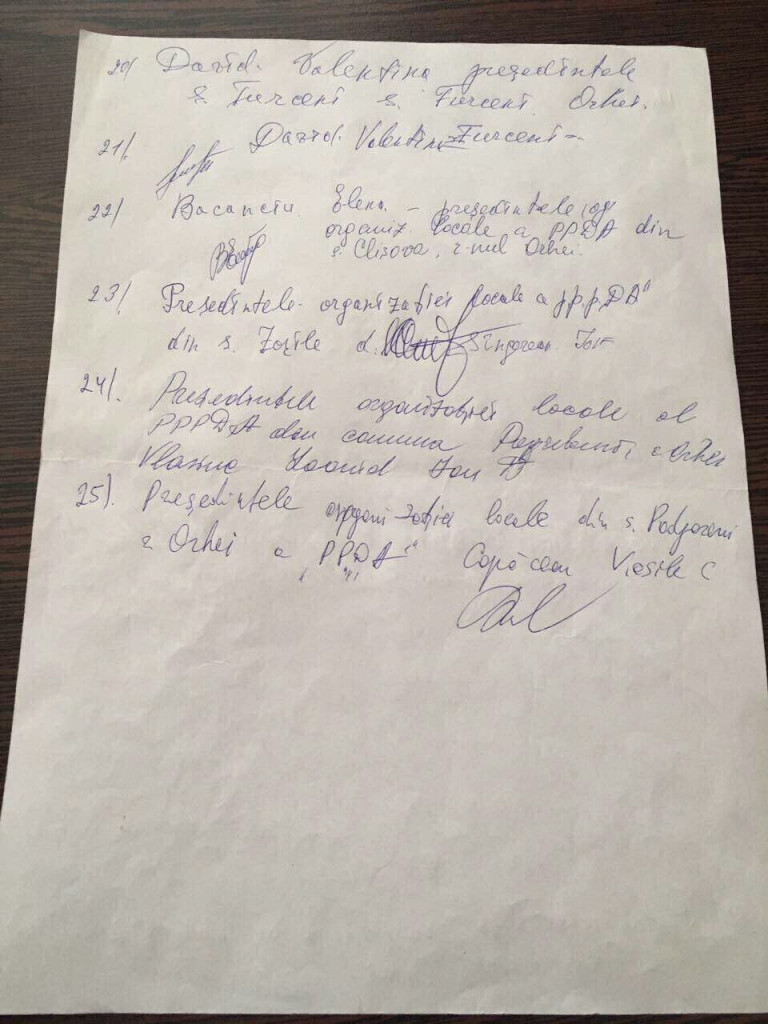 20/ David Valentina președintele
s. Furceni s. Furceni Orhei.
21/. David Valentina Furceni
22/ Bacanciu Elena - președintele
organiz. locale a PPDA din
s. Clișova, r-nul Orhei.
23/. Președintele organizației locale a „PPDA"
din s. Zorile d. Singerean Ion
24/. Președintele organizației locale al
PPPDA din comuna r Orhei
Leonid Ion
25). Președintele organizației locale din s. Podgoreni
r Orhei a „PPDA" Copăcean Vasile